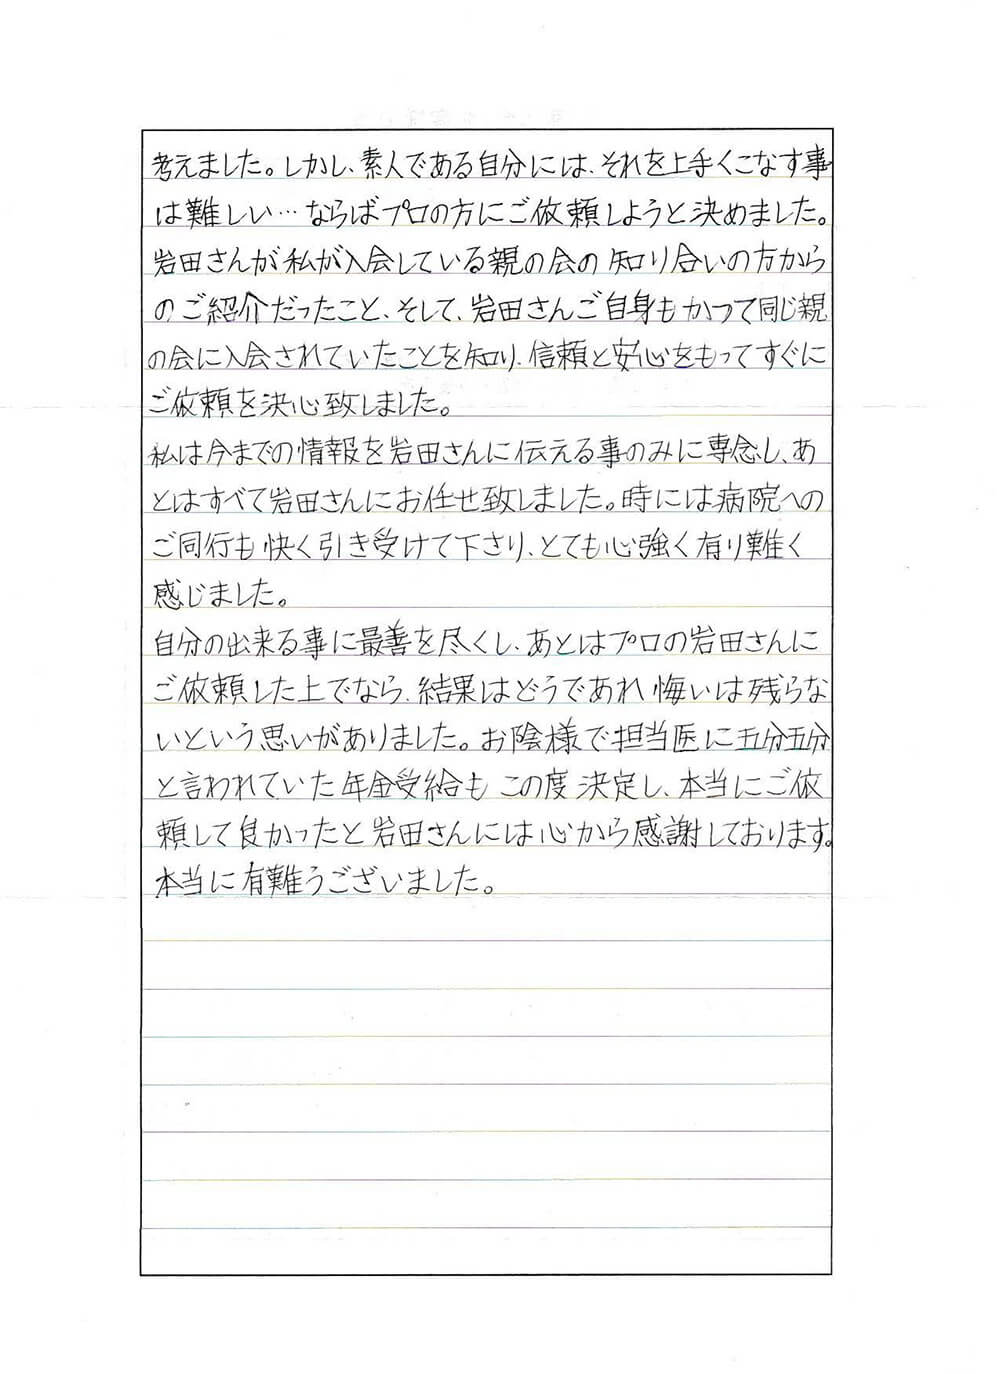 考えました。しかし、素人である自分には、それを上手くこなす事
は難しい…ならばプロの方にご依頼しようと決めました。
岩田さんが私が入会している親の会の知り合いの方から
のご紹介だったこと、そして、岩田さんご自身もかつて同じ親
の会に入会されていたことを知り、信頼と安心をもってすぐに
ご依頼を決心致しました。
私は今までの情報を岩田さんに伝える事のみに専念し、あ
とはすべて岩田さんにお任せ致しました。時には病院への
ご同行も快く引き受けて下さり、とても心強く有り難く
感じました。
自分の出来る事に最善を尽くし、あとはプロの岩田さんに
ご依頼した上でなら、結果はどうであれ悔いは残らな
いという思いがありました。お陰様で担当医に五分五分
と言われていた年金受給もこの度決定し、本当にご依
頼して良かったと岩田さんには心から感謝しております。
本当に有難うございました。